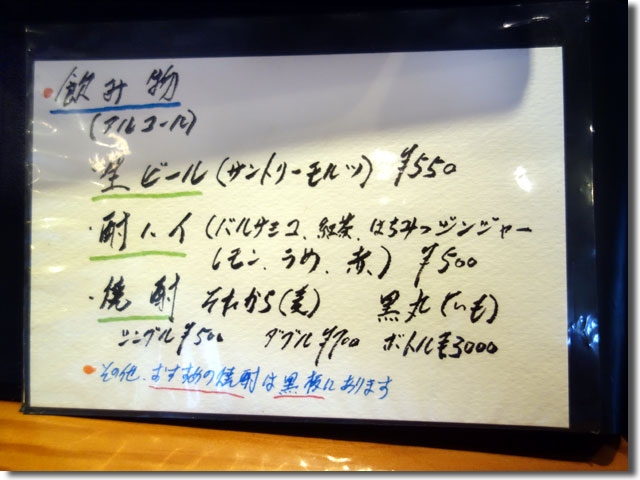 ・飲み物
(アルコール)
・生ビール(サントリーモルツ) ¥550
・酎ハイ(バルサミコ、紅茶、はちみつジンジャー
レモン、うめ、赤、) ¥500
・焼酎 それから(麦) 黒丸(いも)
シングル¥500 ダブル¥700 ボトル¥3000
・その他、おすすめの焼酎は黒板にあります